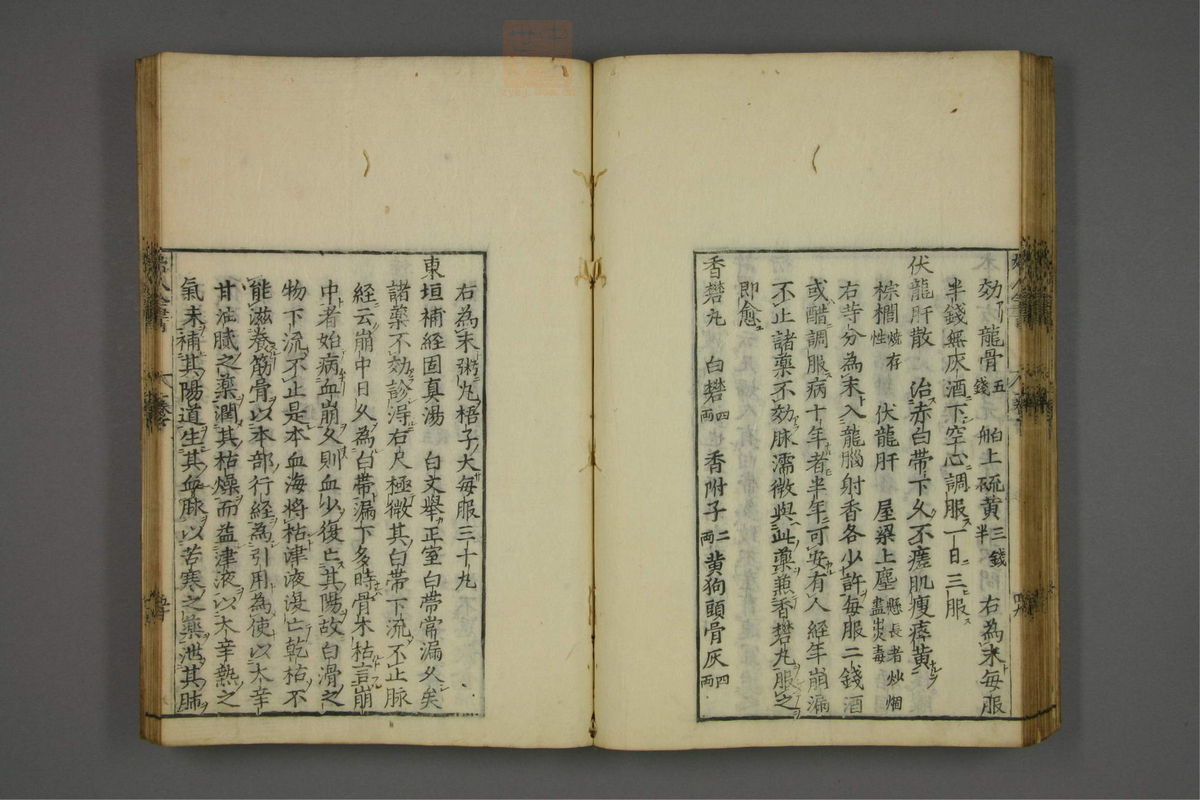 効龍骨五錢舶上硫黄三錢半右為末每服
半錢無灰酒下空心調服一日三服
伏龍肝散 治赤白帶下久不瘥肌瘦瘁黄
棕櫚燒存性 伏龍肝 屋梁上塵懸長者炒烟盡出火毒
右等分為末入龍腦射香各少許每服二錢酒
或醋調服病十年者半年可安有人經年崩漏
不止諸藥不効脉濡微與此藥兼香礬丸服之
即愈
香礬丸 白礬四両 香附子二両 黄狗頭骨灰四両
右為末粥丸梧子大每服三十丸
東垣補経固真湯 白文舉正室白帶常漏久矣
諸藥不効診得右尺極微其白帶下流不止脉
経云崩中日久為白帶漏下多時骨木枯言崩
中者始病血崩久則血少復亡其陽故白滑之
物下流不止是本血海将枯津液復亡乾枯不
能滋養筋骨以本部行経為引用為使以大辛
甘油膩之藥潤其枯燥而益津液以大辛熱之
氣味補其陽道生其血脉以苦寒之藥泄其肺